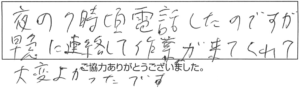 夜の7時頃電話したのですが
早急に連絡して作業が来てくれて
大変よかったです
ご協力ありがとうございました。